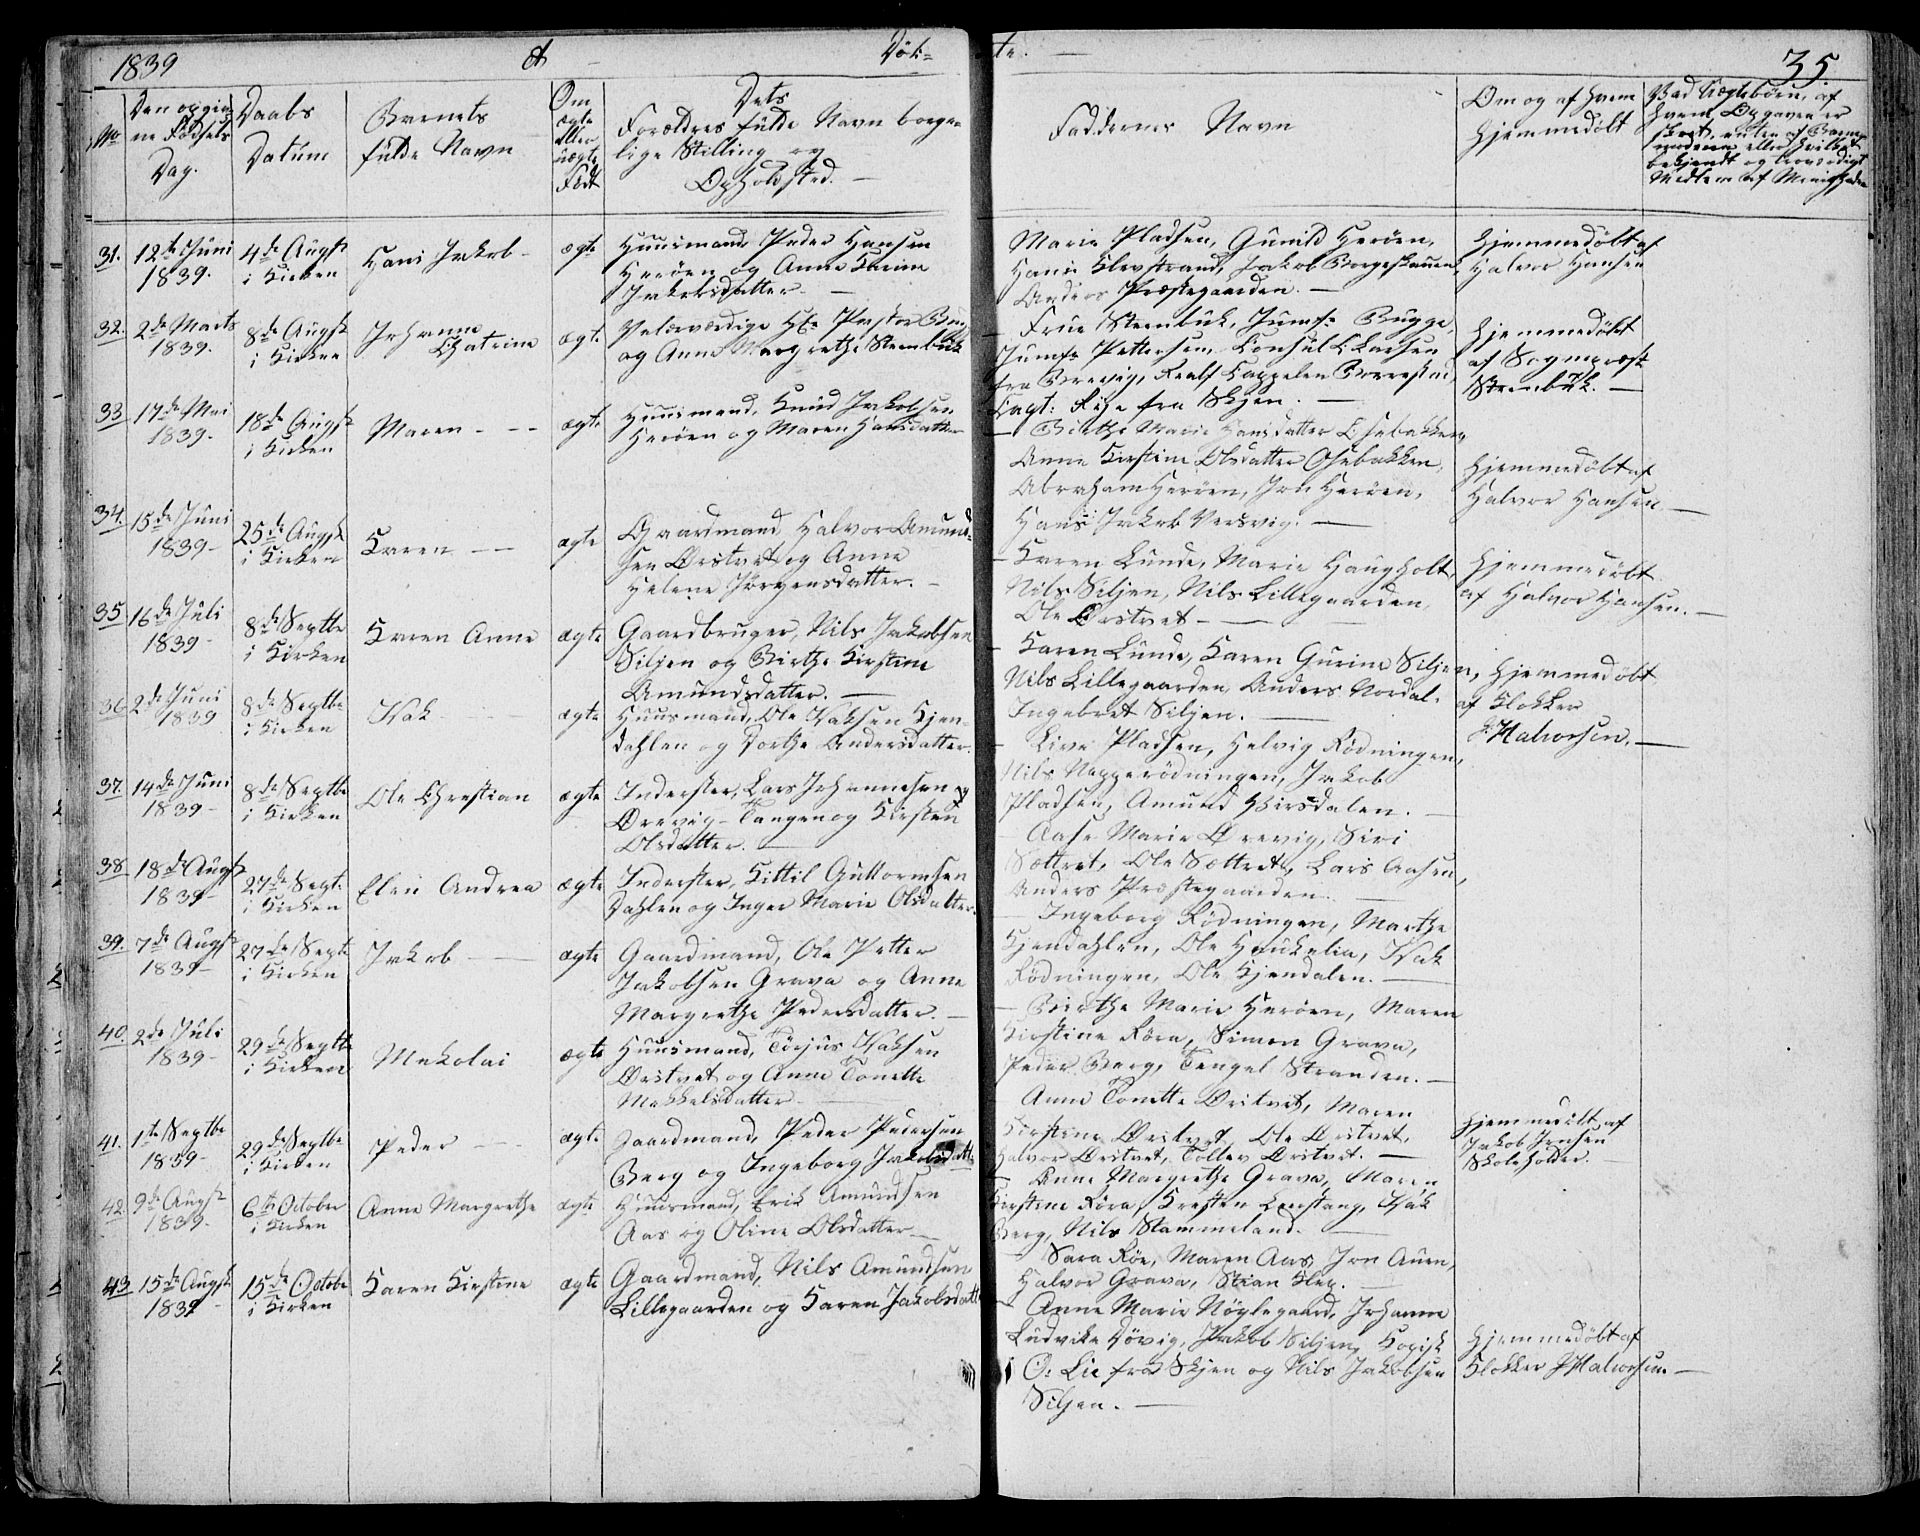 1839
Døb=
te.
35.
No
Den opgiv
ne Fødsels
Dag.
Daabs
Datum
Barnets
fulde Navn
Om
ægte
eller
uægte
Født
Dets
Forældres fulde Navn borger
lige Stilling og
Opholdsted.
Faddernes Navn
Om og af hvem
hjemmedøbt
Ved Uægtebørn, af
hvem Opgaven er
skeet, enten af Barne
moderen eller hvilket
bekjendt og troværdigt
Medlem af Menigheden
31. 12te Juni
1839.
4de Augst
i Kirken
Hans Jakob
ægte
Huusmand Peder Hansen
Herøen og Anne Karine
Jakobsdatter.
Marie Pladsen, Gunild Herøen,
Hans Klevstrand, Jakob Borgeskauen
Anders Præstegaarden.
Hjemmedøbt af
Halvor Hansen
32. 2de Marts
1839.
8de Augst
i Kirken
Johanne
Chatrine
ægte
Velærværdige Hr. Pastor
og Anne Margrethe Steenbuk
Frue Steenbuk, Jumfr Bugge,
Jumfr Pettersen, Consul C. Larsen
fra Brevig, Cappelen
Capt: fra Skjen.
Hjemmedøbt
af Sogneprest
Steenbuk.
33. 17de Mai
1839.
18de Augst
i Kirken
Maren
ægte
Huusmand, Knud Jakobsen
Herøen og Maren Hansdatter
Birthe Marie Hansdatter Osebakken,
Anne Kirstine Olsdatter Osebakken,
Abraham Herøen, Jon Herøen,
Hans Jakob Versvig.
Hjemmedøbt af
Halvor Hansen.
34. 15de Juni
1839
25de Augst
i Kirken
Karen
ægte
Gaardmand Halvor Amund=
sen Ørstvet og Anne
Helene Jørgensdatter.
Karen Lunde, Marie Haugholt,
Nils Siljen, Nils Lillegaarden,
Ole Ørstvet
Hjemmedøbt
af Halvor Hansen.
35 16de Juli
1839
8de Septbr
i Kirken
Karen Anne
ægte
Gaardbruger, Nils Jakobsen
Siljen og Birthe Kirstine
Amundsdatter.
Karen Lunde, Karen Gurine Siljen,
Nils Lillegaarden, Anders Nordal.
Ingebret Siljen.
Hjemmedøbt
af Klokker
Halvorsen.
36 2de Juni
1839
8de Septbr
i Kirken
Isak
ægte
Huusmand, Ole Isaksen Kjen=
dahlen og Dorthe Andersdatter.
Live Pladsen, Helvig Rødningen,
Nils Rødningen, Jakob
Pladsen, Amund
37. 14de Juni
1839
8de Septbr
i Kirken
Ole Christian
ægte
Inderster, Lars Johannesen
Ørevig-Tangen og Kirsten
Olsdatter.
Aase Marie Ørevig, Siri
Sættret, Ole Sættret, Lars Aasen,
Anders Præstegaarden.
38. 18de Augst
1839
27de Sept.
i Kirken
Elen Andrea
ægte
Inderster, Kittil Guttormsen
Dahlen og Inger Marie Olsdatter.
Ingeborg Rødningen, Marthe
Kjendahlen, Ole Haukelia, Isak
Rødningen, Ole Kjendalen.
39. 7de Augst
1839
27de Sept
i Kirken
Jakob
ægte
Gaardmand, Ole Petter
Jakobsen Grava og Anne
Margrethe Pedersdatter.
Birthe Marie Herøen, Maren
Kirstine Røra, Simon Grava,
Peder Berg, Tengel Stranden.
40. 2de Juli
1839
29de Septbr
i Kirken
Mekolai
ægte
Huusmand, Torjus Isaksen
Ørstvet og Anne Tonette
Mekkelsdatter
Anne Tonette Ørstvet, Maren
Kirstine Ørstvet, Ole Ørstvet,
Halvor Ørstvet, Tollev Ørstvet.
Hjemmedøbt af
Jakob Jensen
Skoleholder.
41. 1te Septbr
1839
29de Septbr
i Kirken
Peder
ægte
Gaardmand, Peder Pedersen
Berg og Ingeborg Jakobsdatt
Anne Margrethe Grava, Maren
Kirstine Røra, Kresten Isak
Berg, Nils Stammeland.
42. 9de Augst
1839
6te October
i Kirken
Anne Margrethe
ægte
Huusmand, Erik Amundsen
Aas og Oline Olsdatter
Sara Røe, Maren Aas, Jon Auen,
Halvor Grava, Stian Klep.
43 15de Augst
1839
15de Octobr
i Kirken
Karen Kirstine
ægte
Gaardmand, Nils Amundsen
Lillegaarden og Karen Jakobsdatt
Anne Marie Nøglegaard, Johanne
Ludvike Døvig, Jakob Siljen, Kopist
O. Lie fra Skjen og Nils Jakobsen
Siljen.
Hjemmedøbt af
Klokker Halvorsen